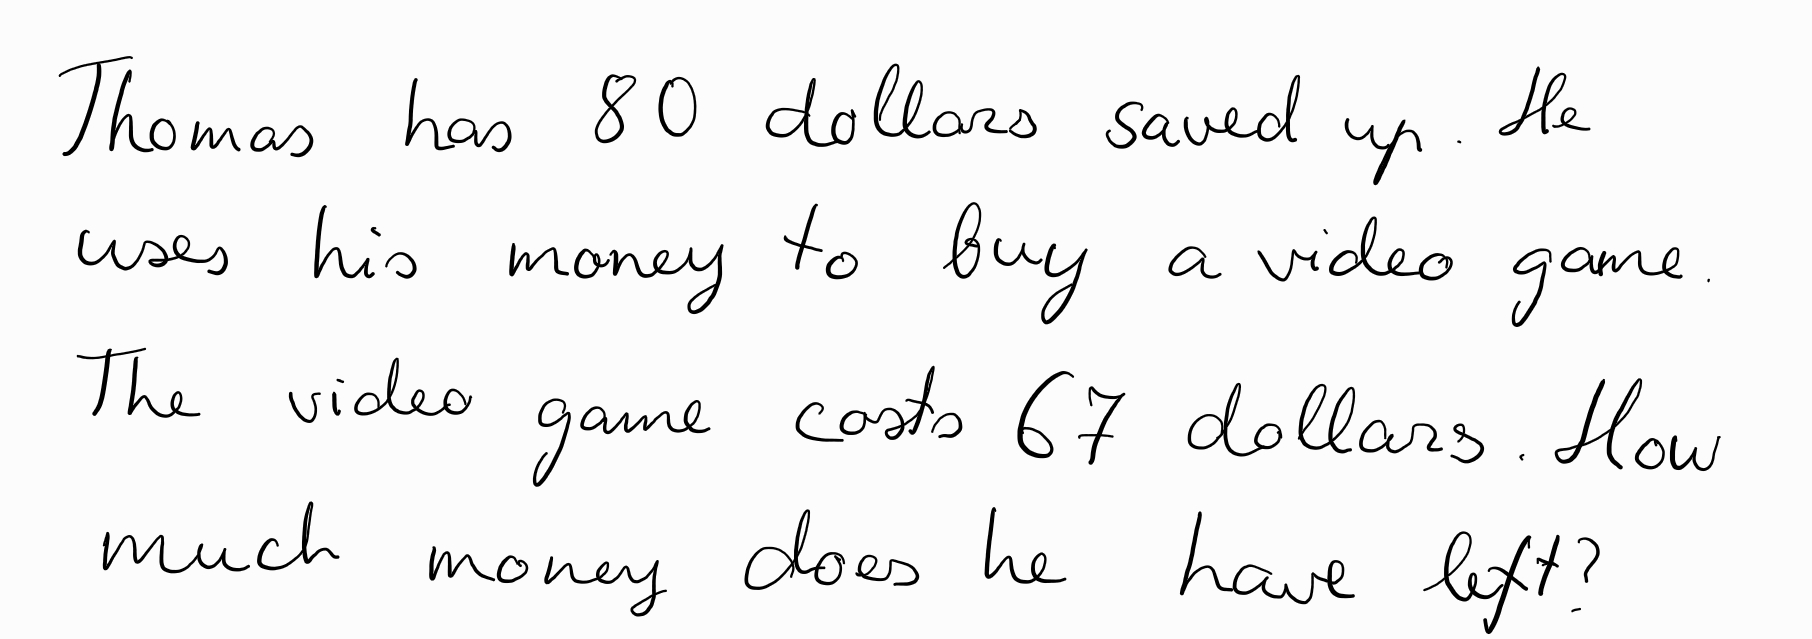 Thomas has 80 dollars saved up. He
uses his money to buy a video game.
The video game costs 67 dollars. How
much money does he have left?